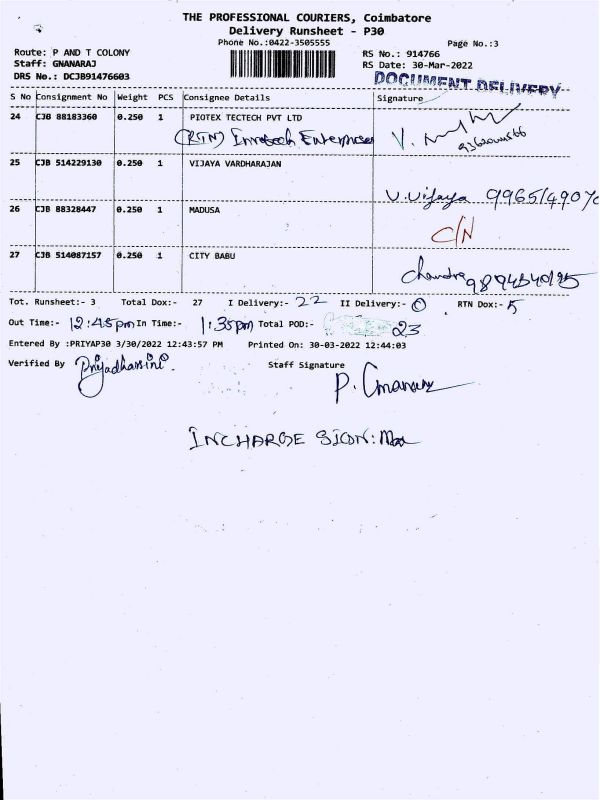 THE PROFESSIONAL COURIERS, Coimbatore
Delivery Runsheet - P30
Phone No.:0422-3505555
Page No.:3
Route: P AND T COLONY
Staff: GNANARAJ
DRS No.: DCJB91476603
RS No.: 914766
RS Date: 30-Mar-2022
DOCUMENT DELIVERY
S No Consignment No Weight PCS Consignee Details Signature
24 CJB 88183360 0.250 1 PIOTEX TECTECH PVT LTD
(RTN) Enterprises V.
25 CJB 514229130 0.250 1 VIJAYA VARDHARAJAN
V.Vijaya
26 CJB 88328447 0.250 1 MADUSA
C/N
27 CJB 514087157 0.250 1 CITY BABU
Chandra
Tot. Runsheet:- 3 Total Dox:- 27 I Delivery:- 22 II Delivery:- 0 RTN Dox:- 5
Out Time:- 12:45pm In Time:- 1:35pm Total POD:- 23
Entered By :PRIYAP30 3/30/2022 12:43:57 PM Printed On: 30-03-2022 12:44:03
Verified By Priyadharsini. Staff Signature
P. Gnanaraj
INCHARGE SIGN: